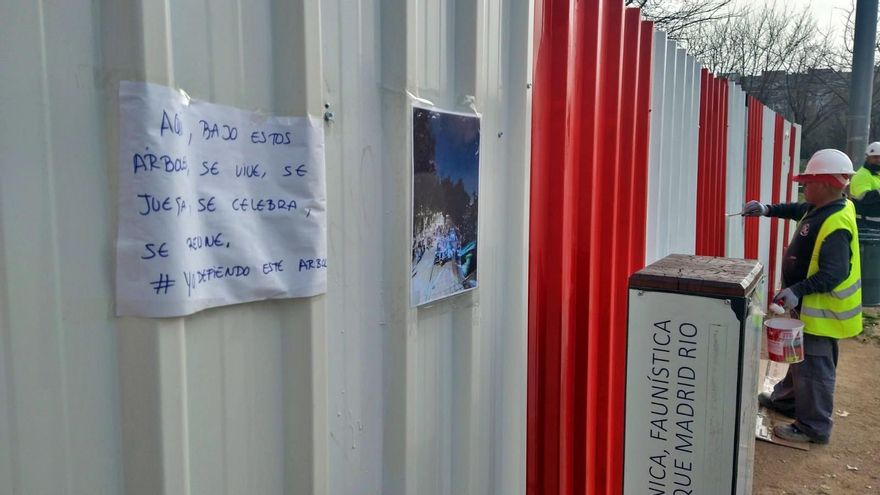 AQUÍ, BAJO ESTOS
ÁRBOLES, SE VIVE, SE
JUEGA, SE CELEBRA,
SE REÚNE.
# YO DEFIENDO ESTE ARBOL
NICA, FAUNÍSTICA
QUE MADRID RIO